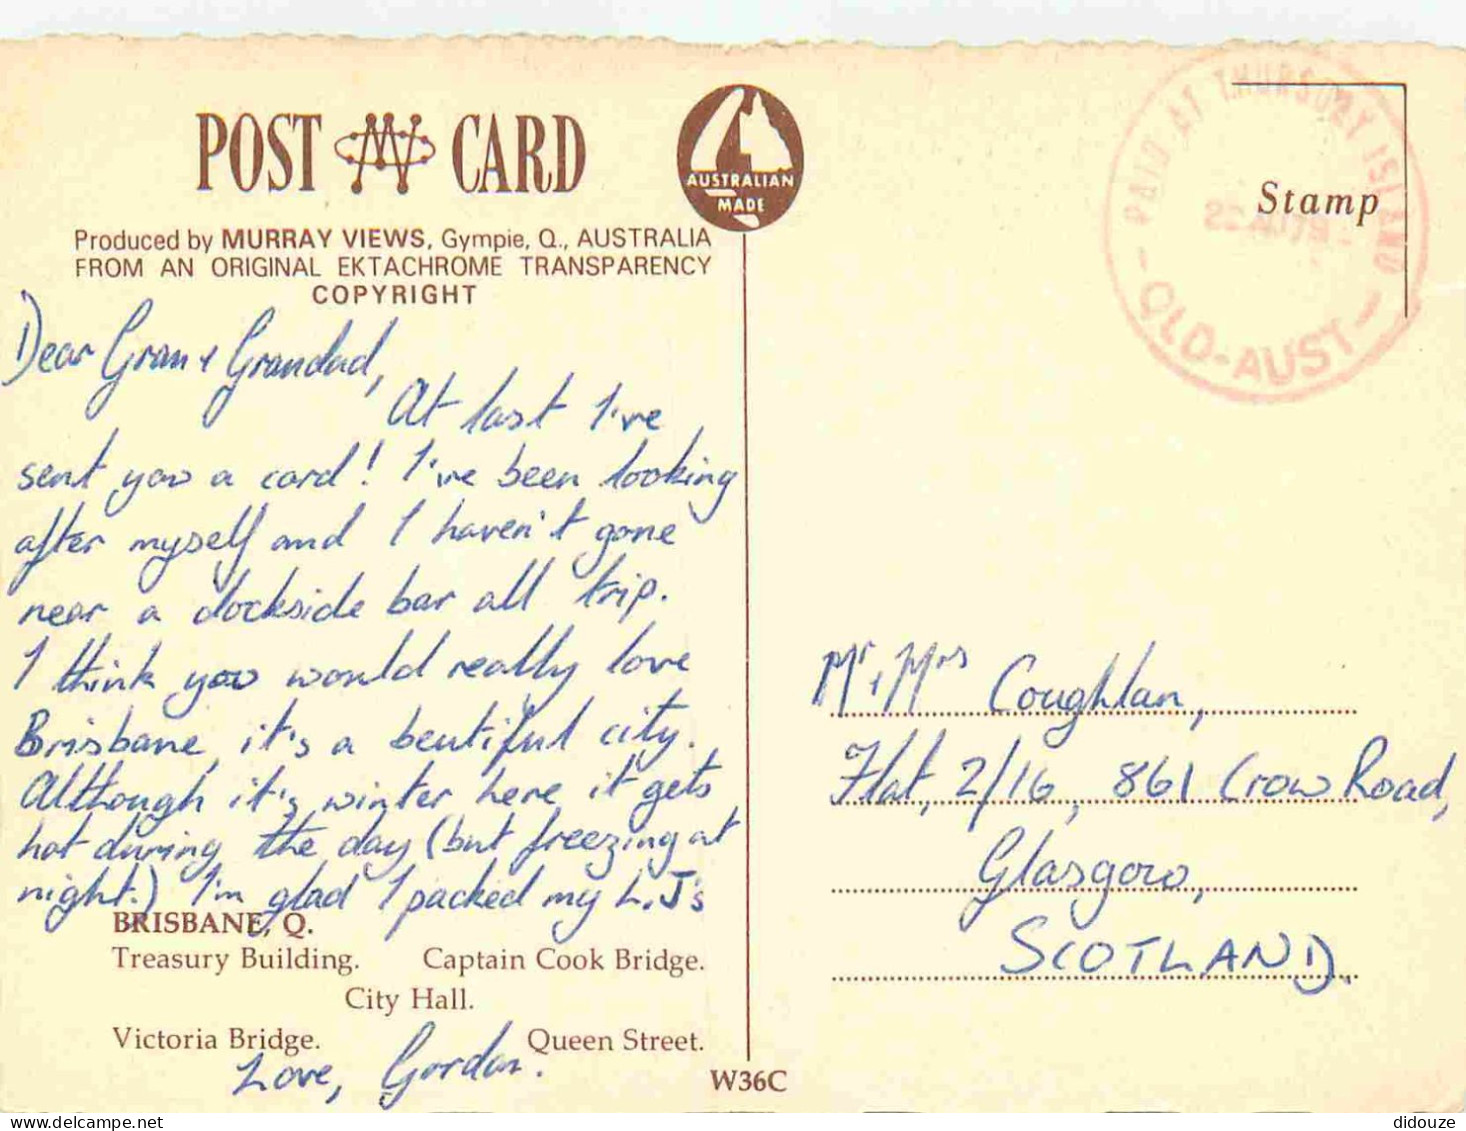 POST CARD
AUSTRALIAN
MADE
Produced by MURRAY VIEWS, Gympie, Q., AUSTRALIA
FROM AN ORIGINAL EKTACHROME TRANSPARENCY
COPYRIGHT
Dear Gran + Grandad,
At last I've
sent you a card! I've been looking
after myself and I haven't gone
near a dockside bar all trip.
I think you would really love
Brisbane, it's a beutiful city.
Although it's winter here it gets
hot during the day (but freezing at
night.) I'm glad I packed my L.J's
BRISBANE, Q.
Treasury Building. Captain Cook Bridge.
City Hall.
Victoria Bridge. Queen Street.
Love, Gordon.
W36C
PAID AT THURSDAY ISLAND
QLD-AUST
Stamp
Mr + Mrs Coughlan,
Flat, 2/16, 861 Crow Road,
Glasgow,
SCOTLAND.
didouze